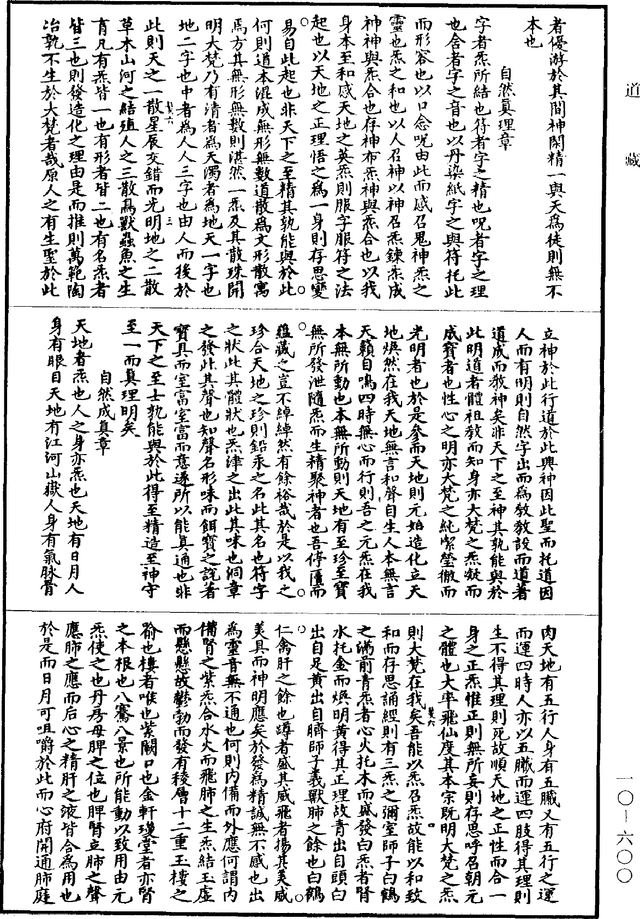 道藏
者優游於其間神閑精一與天為徒則無不
本也
自然真理章
字者炁所結也符者字之精也呪者字之理
也含者字之音也以丹染紙字之與符托此
而形容也以口念呪由此而感召鬼神炁之
靈也炁之和也以人召神以神召炁鍊炁成
神神與炁合也存神布炁神與炁合也以我
身本至和感天地之英炁則服字服符之法
起也以天地之正理悟之為一身則存思變
易自此起也非天下之至精其孰能與於此
何則道本混成無形無數道散為文形散寓
焉方其無形無數則湛然一炁及其散殊開
明大梵乃有清者為天濁者為地天一字也
地二字也中者為人人三字也由人而後於
此則天之一散星辰交錯而光明地之二散
草木山河之結道人之三散鳥獸蟲魚之生
育凡有炁皆一也有形者皆二也有名炁者
皆三也則發造化之理由是而推則萬範陶
冶孰不生於大梵者哉原人之有生聖於此
立神於此行道於此與神因此聖而托道因
人而有明則自然字出而為教教設而道著
道成而教神矣非天下之至神其孰能與於
此明道者體祖教而知身亦大梵之炁凝而
成寶者也性心之明亦大梵之純潔瑩徹而
光明者也於是參而天地則元始造化立天
地煥然在我天地無言和聲自生人本無言
天籟自鳴四時無心而行則吾之元炁在我
本無所動也本無所動則天地有至珍至寶
無所發泄隨炁而生精聚神者也吾停匱而
蘊藏之豈不綽綽然有餘裕哉於是以我之
珍合天地之珍則鉛汞之名此其名也符字
之狀此其體狀也炁津之出此其味也洞章
之發此其聲也知聲名形味而餌寶之說著
寶具而室富室富而意遂所以能真通也非
天下之至士孰能與於此得至精造至神守
至一而真理明矣
自然成真章
天地者炁也人之身亦炁也天地有日月人
身有眼目天地有江河山嶽人身有氣脉骨
肉天地有五行人身有五臟又有五行之運
而運四時人亦以五臟而運四肢得其理則
生不得其理則死故順天地之正性而合一
身之正炁惟正則無所妄則存思呼召朝元
之體也大率飛仙度其本宗既明大梵之炁
則大梵在我矣吾能以炁召炁故能以和致
和而存思誦經則有三炁之彌室師子白鶴
之滿前青炁者心火托木而盛發白炁者腎
水托金而煥明黃得其正理故青出自頭白
出自足黃出自臍師子義獸肺之餘也白鶴
仁禽肝之餘也蹲者盛其威飛者揚其美威
美具而神明應矣於發為精誠無不感也出
為靈音無不通也何則內備而外應何謂內
備腎之紫炁合水火而飛肺之生炁結玉虛
而懸懸故鬱勃而發有稜層十二重玉樓之
喻也樓者喉也紫闕口也金軒瓊堂者亦腎
之本根也八騫八景也所能動以致用由元
炁使之也丹房母脾之位也脾腎立肺之聲
應肺之應而后心之精肝之液皆合為用也
於是而日月可咀嚼於此而心府開通肺庭
一〇—六〇〇